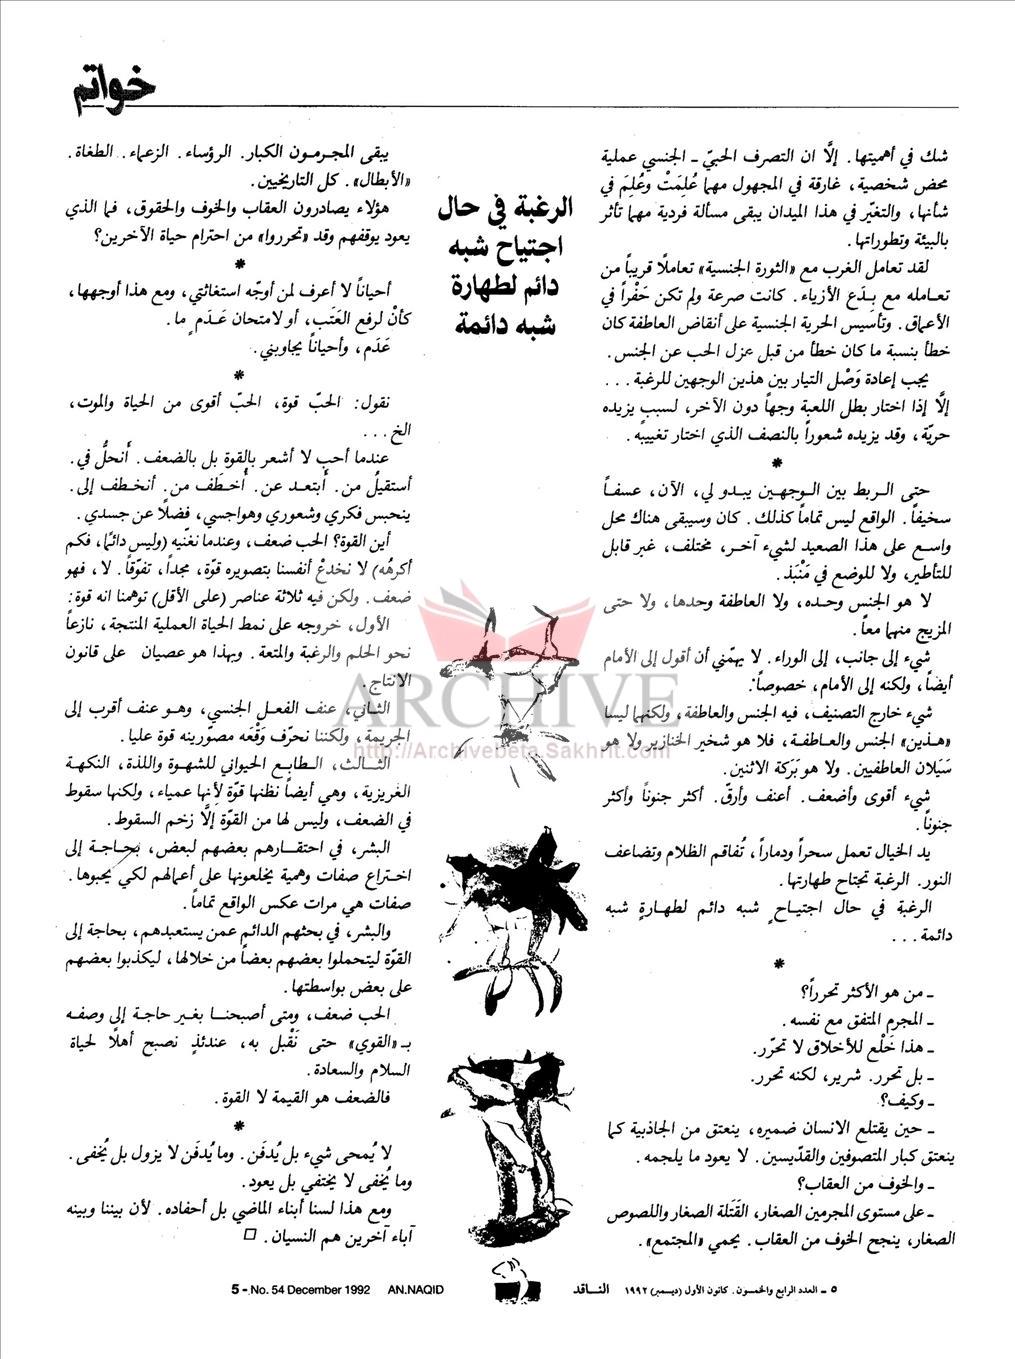 خواتم
شك في أهميتها. إلَّا ان التصرف الحبيّ ـ الجنسي عملية
محض شخصية، غارقة في المجهول مهما عُلِمَتْ وعُلِمَ في
شأنها، والتغيّر في هذا الميدان يبقى مسألة فردية مهما تأثر
بالبيئة وتطوراتها.
لقد تعامل الغرب مع «الثورة الجنسية» تعاملًا قريباً من
تعامله مع بِدَع الأزياء. كانت صرعة ولم تكن حَفْراً في
الأعماق. وتأسيس الحرية الجنسية على أنقاض العاطفة كان
خطأ بنسبة ما كان خطأ من قبل عزل الحب عن الجنس.
يجب إعادة وَصْل التيار بين هذين الوجهين للرغبة...
إلَّا إذا اختار بطل اللعبة وجهاً دون الآخر، لسببٍ يزيده
حريّة، وقد يزيده شعوراً بالنصف الذي اختار تغييبه.
*
حتى الربط بين الوجهين يبدو لي، الآن، عسفاً
سخيفاً. الواقع ليس تماماً كذلك. كان وسيبقى هناك محل
واسع على هذا الصعيد لشيء آخر، مختلف، غير قابل
للتأطير، ولا للوضع في مَنْبَذ.
لا هو الجنس وحده، ولا العاطفة وحدها، ولا حتى
المزيج منهما معاً.
شيء إلى جانب، إلى الوراء. لا يهمّني أن أقول إلى الأمام
أيضاً، ولكنه إلى الأمام، خصوصاً.
شيء خارج التصنيف، فيه الجنس والعاطفة، ولكنهما ليسا
«هذين» الجنس والعاطفة، فلا هو شخير الخنازير ولا هو
سَيَلان العاطفيين. ولا هو بَركة الاثنين.
شيء أقوى وأضعف. أعنف وأرقّ. أكثر جنوناً وأكثر
جنوناً.
يد الخيال تعمل سحراً ودماراً، تُفاقم الظلام وتضاعف
النور. الرغبة تجتاح طهارتها.
الرغبة في حال اجتياحٍ شبه دائم لطهارةٍ شبه
دائمة...
*
ـ من هو الأكثر تحرراً؟
ـ المجرم المتفق مع نفسه.
ـ هذا خَلْع للأخلاق لا تحرّر.
ـ بل تحرر. شرير، لكنه تحرر.
ـ وكيف؟
ـ حين يقتلع الانسان ضميره، ينعتق من الجاذبية كما
ينعتق كبار المتصوفين والقدّيسين. لا يعود ما يلجمه.
ـ والخوف من العقاب؟
ـ على مستوى المجرمين الصغار، القَتَلة الصغار واللصوص
الصغار، ينجح الخوف من العقاب. يحمي «المجتمع».
الرغبة في حال
اجتياح شبه
دائم لطهارة
شبه دائمة
يبقى المجرمون الكبار. الرؤساء. الزعماء. الطغاة.
«الأبطال». كل التاريخيين.
هؤلاء يصادرون العقاب والخوف والحقوق، فما الذي
يعود يوقفهم وقد «تحرروا» من احترام حياة الآخرين؟
*
أحياناً لا أعرف لمن أوجّه استغاثتي، ومع هذا أوجهها،
كأنْ لرفع العَتَب، أو لامتحان عَدَم ٍ ما.
عَدَم، وأحياناً يجاوبني.
*
نقول: الحبّ قوة، الحبّ أقوى من الحياة والموت،
الخ...
عندما أحب لا أشعر بالقوة بل بالضعف. أَنحلُّ في.
أستقيلُ من. أبتعد عن. أُخطَف من. أنخطف إلى.
ينحبس فكري وشعوري وهواجسي، فضلًا عن جسدي.
أين القوة؟ الحب ضعف، وعندما نغنّيه (وليس دائما، فكم
أكرهُه) لا نخدعْ أنفسنا بتصويره قوّة، مجداً، تفوّقاً. لا، فهو
ضعف. ولكن فيه ثلاثة عناصر (على الأقل) توهمنا انه قوة:
الأول، خروجه على نمط الحياة العملية المنتجة، نازعاً
نحو الحلم والرغبة والمتعة. وبهذا هو عصيان على قانون
الانتاج.
الثاني، عنف الفعل الجنسي، وهو عنف أقرب إلى
الجريمة، ولكننا نحرّف وقْعَه مصوّرينه قوة عليا.
الثالث، الطابع الحيواني للشهوة واللذة، النكهة
الغريزية، وهي أيضاً نظنها قوّة لأنها عمياء، ولكنها سقوط
في الضعف، وليس لها من القوّة إلَّا زخم السقوط.
البشر، في احتقارهم بعضهم لبعض، بحاجة إلى
اختراع صفات وهمية يخلعونها على أعمالهم لكي يحبوها.
صفات هي مرات عكس الواقع تماماً.
والبشر، في بحثهم الدائم عمن يستعبدهم، بحاجة إلى
القوّة ليتحملوا بعضهم بعضاً من خلالها، ليكذبوا بعضهم
على بعض بواسطتها.
الحب ضعف، ومتى أصبحنا بغير حاجة إلى وصفه
بـ «القوي» حتى نَقْبل به، عندئذٍ نصبح أهلًا لحياة
السلام والسعادة.
فالضعف هو القيمة لا القوة.
*
لا يُمحى شيء بل يُدفَن. وما يُدفَن لا يزول بل يُخفى.
وما يُخفى لا يختفي بل يعود.
ومع هذا لسنا أبناء الماضي بل أحفاده. لأن بيننا وبينه
آباء آخرين هم النسيان. □
ARCHIVE
http://Archivebeta.Sakhrit.com
٥ ـ العدد الرابع والخمسون. كانون الأول (ديسمبر) ١٩٩٢ الناقد
5 - No. 54 December 1992 AN.NAQID